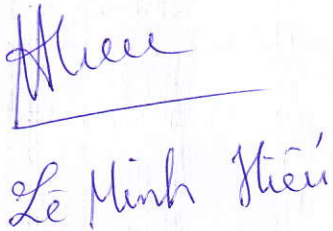 Hieu
Lê Minh Hiếu